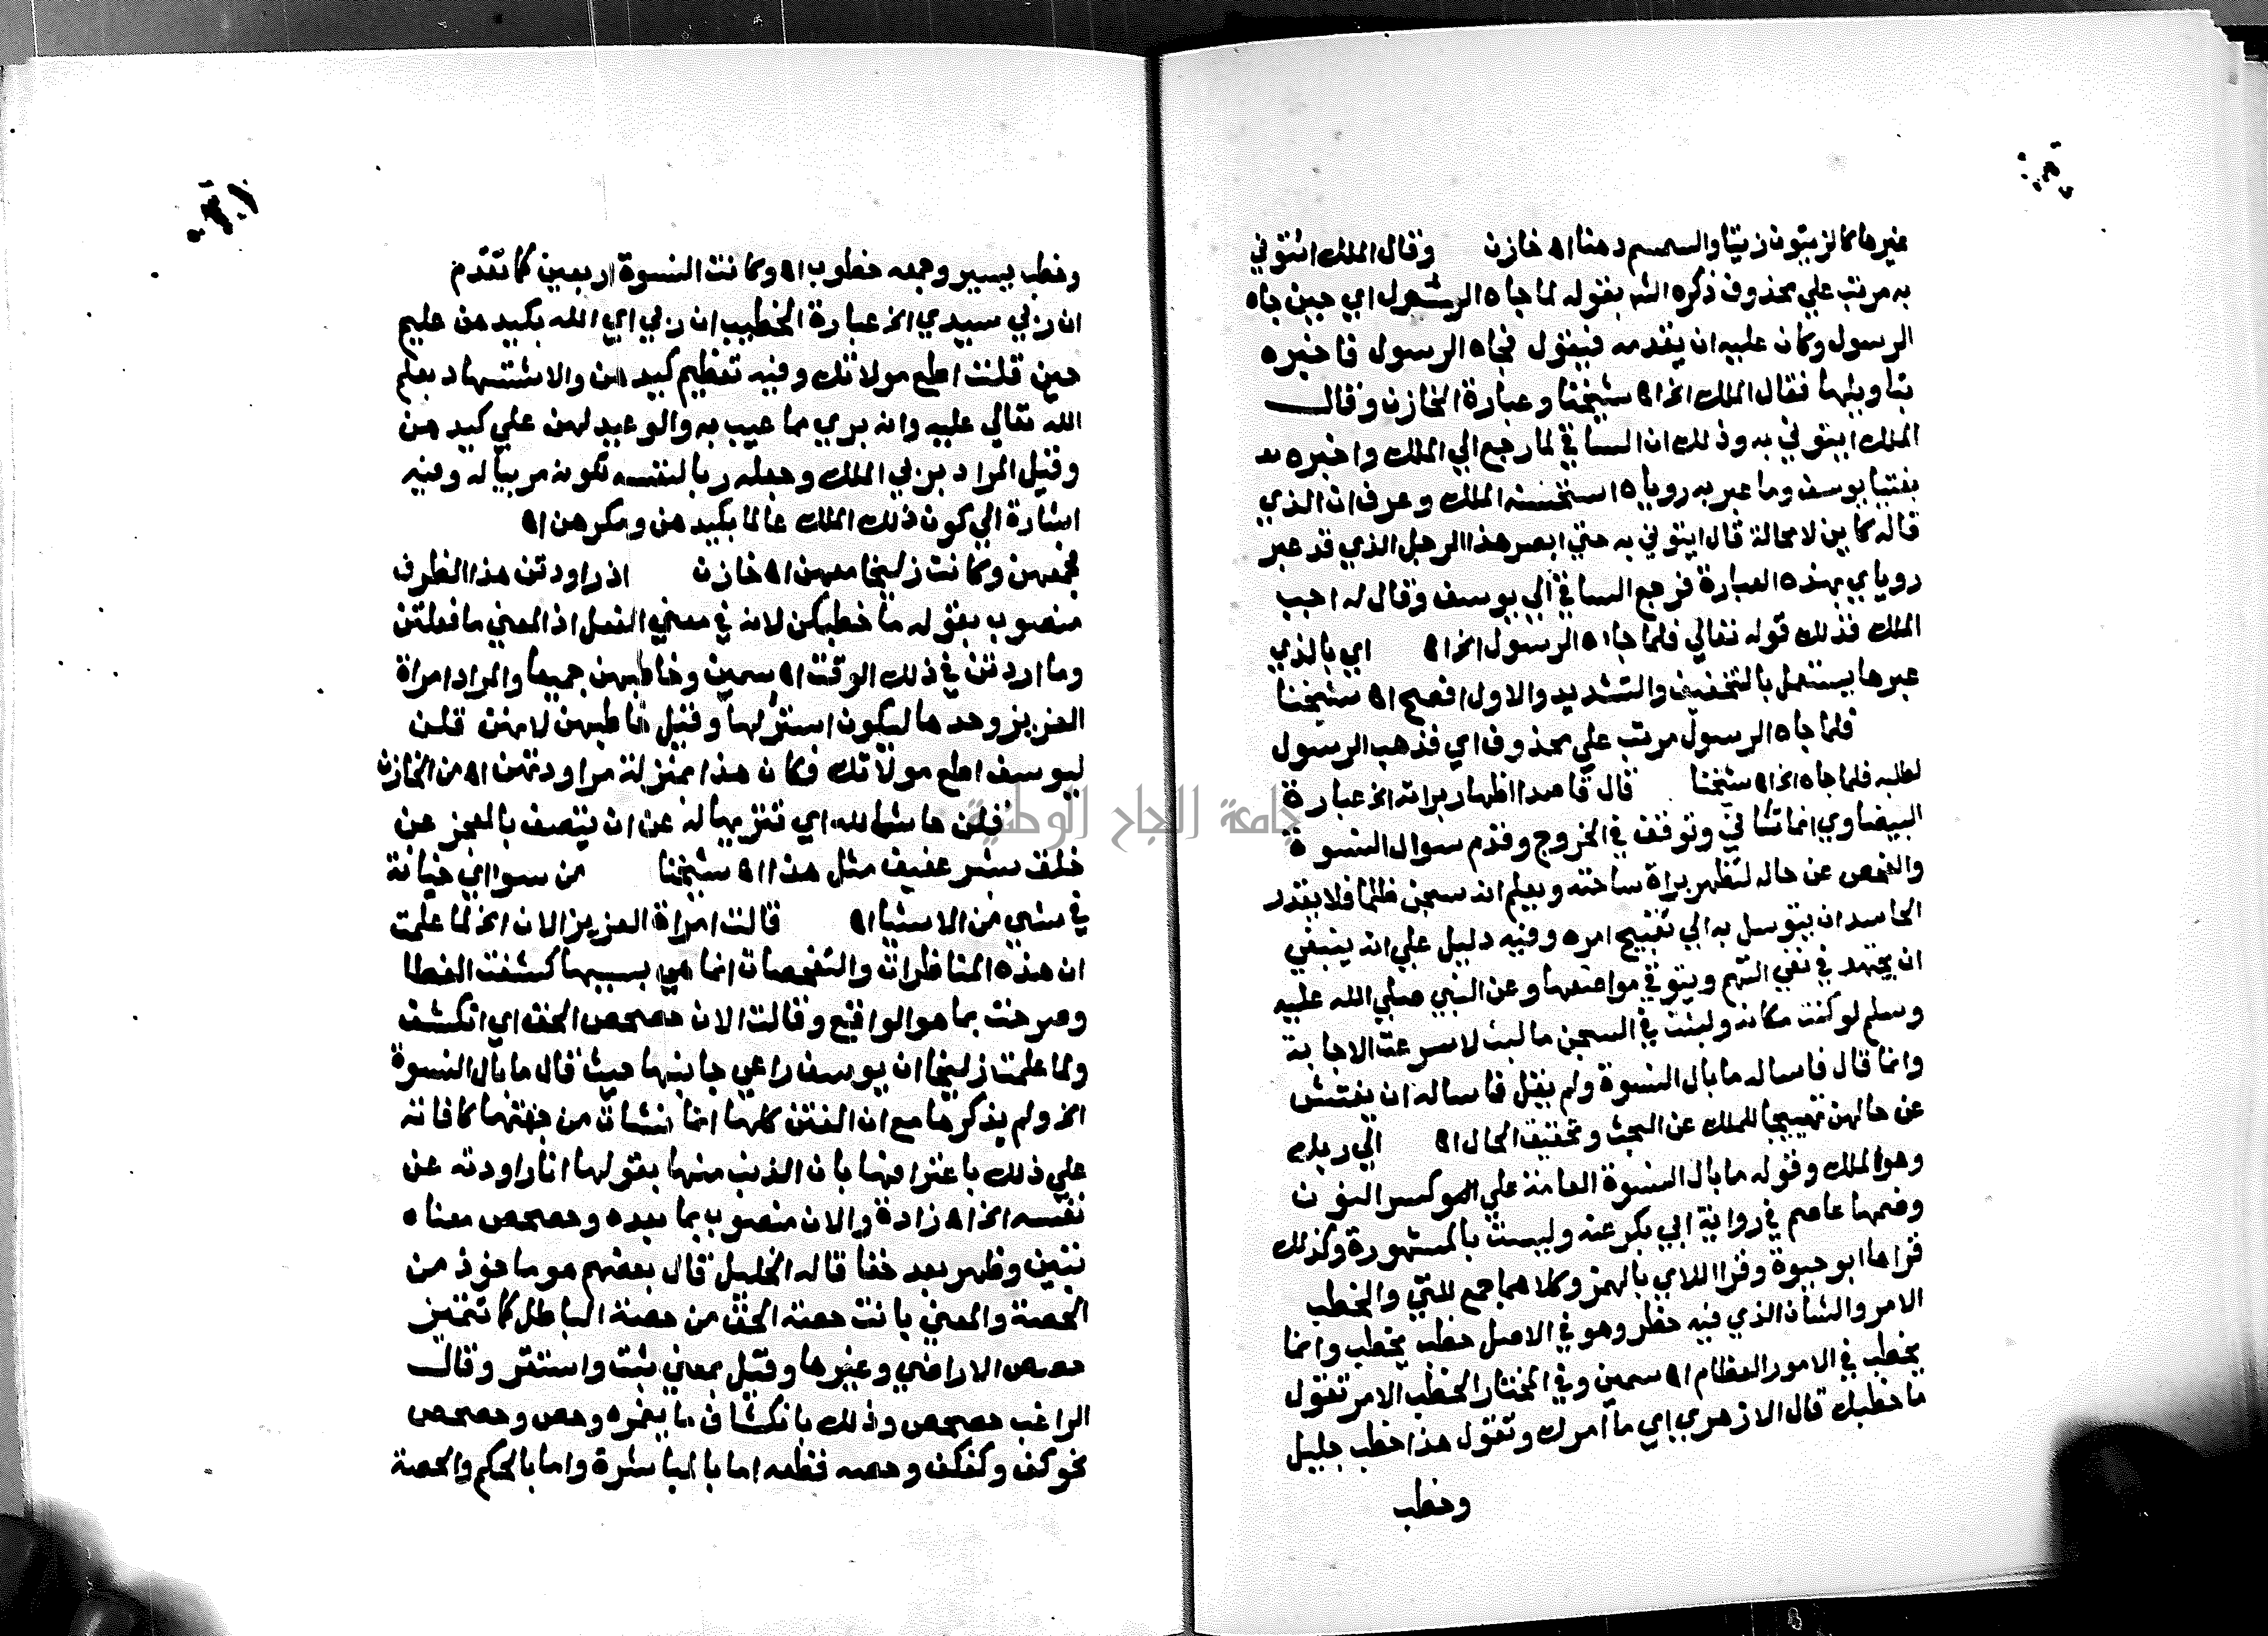 غيرها كالزيتون زيتا والسمسم دهنا اه خازن وقال الملك ائتوني
به مرتب علي محذوف ذكره الشر بقوله لما جاه الرسول اي حين جاه
الرسول وكان عليه ان يقدمه فيقول فجاه الرسول فاخبره
بتاويلها فقال الملك الخ اه شيخنا وعبارة الخازن وقال
الملك ايتوني به وذلك ان الساقي لما رجع الي الملك واخبره
بفتيا يوسف وما عبر به روياه استحسنه الملك وعرف ان الذي
قاله كاين لا محالة قال ايتوني به حتي ابصر هذا الرجل الذي قد عبر
روياي بهذه العبارة فرجع الساقي الي يوسف وقال له اجب
الملك فذلك قوله تعالي فلما جاه الرسول الخ اه اي بالذي
عبرها يستعمل بالتخفيف والتشديد والاول افصح اه شيخنا
فلما جاه الرسول مرتب علي محذوف اي فذهب الرسول
لطلبه فلما جاه الخ اه شيخنا قال قاصدا اظهار براته الخ عبارة
البيضاوي انما تاني وتوقف في الخروج وقدم سوال النسوة
والفحص عن حاله لتظهر براة ساحته ويعلم انه سجن ظلما فلا يقدر
الحاسد ان يتوسل به الي تقبيح امره وفيه دليل علي انه ينبغي
ان يجتهد في نفي التهم ويتوقي مواضعها وعن النبي صلي الله عليه
وسلم لو كنت مكانه ولبثت في السجن ما لبث لاسرعت الاجابة
وانما قال فاساله ما بال النسوة ولم يقل فاساله ان يفتش
عن حالهن تهييجا للملك عن البحث وتحقيق الحال اه الي ربك
وهو الملك وقوله ما بال النسوة العامة علي كسر النون
وضمها عاصم في رواية ابي بكر عنه وليست بالمشهورة وكذلك
قراها ابو حيوة وقرا اللاي بالهمز وكلاهما جمع للتي والخطب
الامر والشان الذي فيه خطر وهو في الاصل خطب يخطب وانما
يخطب في الامور العظام اه سمين وفي المختار الخطب الامر تقول
ما خطبك قال الازهري اي ما امرك وتقول هذا خطب جليل
وخطب
وخطب يسير وجمعه خطوب اه وكانت النسوة اربعين كما تقدم
ان ربي سيدي الخ عبارة الخطيب ان ربي اي الله بكيدهن عليم
حين قلت اطع مولاتك وفيه تعظيم كيدهن والاستشهاد بعلم
الله تعالي عليه وانه بري مما عيب به والوعيد لهن علي كيدهن
وقيل المراد بربي الملك وجعله ربا لنفسه لكونه مربيا له وفيه
اشارة الي كون ذلك الملك عالما بكيدهن ومكرهن اه
فجمعهن وكانت زليخا معهن اه خازن اذ راودتن هذا الظرف
منصوب بقوله ما خطبكن لانه في معني الفعل اذ المعني ما فعلتن
وما اردتن في ذلك الوقت اه سمين وخاطبهن جميعا والمراد امراة
العزيز وحدها ليكون استر لها وقيل خاطبهن لانهن قلن
ليوسف اطع مولاتك فكان هذا بمنزلة مراودتهن اه من الخازن
قلن حاشا لله اي تنزيها له عن ان يتصف بالعجز عن
خلق بشر عفيف مثل هذا اه شيخنا من سوا اي خيانة
في شي من الاشيا اه قالت امراة العزيز الان الخ لما علمت
ان هذه المناظرات والتفحصات انما هي بسببها كشفت الغطا
وصرحت بما هو الواقع وقالت الان حصحص الحق اي انكشف
ولما علمت زليخا ان يوسف راعي جانبها حيث قال ما بال النسوة
الخ ولم يذكرها مع ان الفتن كلها انما نشات من جهتها كافاته
علي ذلك باعترافها بان الذنب منها بقولها انا راودته عن
نفسه الخ اه زادة والان منصوب بما بعده وحصحص معناه
تبين وظهر بعد خفا قاله الخليل قال بعضهم هو ماخوذ من
الحصة والمعني بانت حصة الحق من حصة الباطل كما تتميز
حصص الاراضي وغيرها وقيل بمعني ثبت واستقر وقال
الراغب حصحص وذلك بانكشاف ما يغمره وحص وحصحص
نحو كف وكفكف وحصه قطعه اما بالمباشرة واما بالحكم والحصة
جامعة النجاح الوطنية